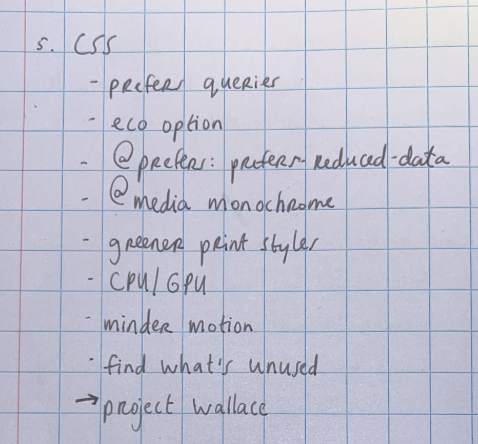 5. CSS
- prefers queries
- eco option
- @prefers: prefers-reduced-data
- @media monochrome
- greener print styles
- CPU/GPU
- minder motion
- find what's unused
→ project wallace